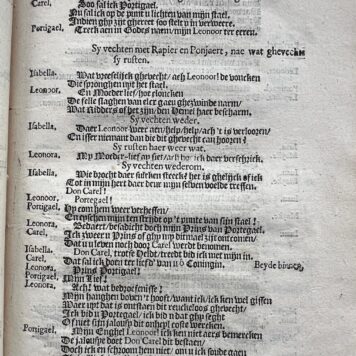 Carel. Soo sal ick Portigael.
Nu sal ick op de punt u lichten van mijn stael.
Indien ghy zijt gherret soo stelt u in verweere.
Portigael. Treck aen in Godes naem/mijn Leonoor ter eeren.
Sy vechten met Rapier en Ponjaert, nae wat ghevecht
sy rusten.
Isabella. Wat vreeslijck ghevecht/ach Leonoor! de voncken
Die sprongen uyt het stael.
Leonoor. En Moeder lief/hoe kloncken
De felle slaghen van elcr gaeu ghezwinde narm/
Wat Ridders of het zijn/den Hemel haer bescharm.
Sy vechten weder.
Isabella. Daer Leonoor weer aen/help/help/ach 't is verlooren/
En isser niemant dan die dit ghevecht can hooren?
Sy rusten haer weer wat.
Leonora. My Moeder-lief
ick daer verschrick.
Sy vechten wederom.
Isabella. Wie brocht daer
steecken streeck? het is ghelijck of ick
Tot in mijn hart daer deur mijn selven voelde treffen.
Don Carel!
Leonoor. Portegael!
Portigael. Hy com hem weer verheffen/
En eyschen mijn ten strijdt op 't punte van sijn stael!
Leonora. Bedaert/besadicht doch mijn Prins van Portegael.
Carel. Ick sweer u Prins of ghy my dit mael sijt ontcomen/
Dat u u leven noch door Carel werdt benomen.
Isabella. Don Carel, trotse Heldt/treedt bid ick met mijn in.
Carel. Dat sal ick doen ter liefd' van u ô Coningin. Beyde binnen.
Leonora. Prins Portigael!
Portigael. Mijn Lief!
Leonora. Ach! wat bedroefenisse!
Mijn hanghen boven 't hooft/want ick/ick ken wel gissen
Waer uyt dat is ontstaen dit reuckeloos ghevecht/
Ick bid u Portigael/ick bid u dat ghy seght
Of niet sijn jalousy dit onheyl eerste werckten.
Portigael. Mijn Enghel Leonoor! ick ken niet aers bemercken
De jalousye doet Don Carel dit bestaen/
Doch ick en schroom hem niet/om u ick soude gaen